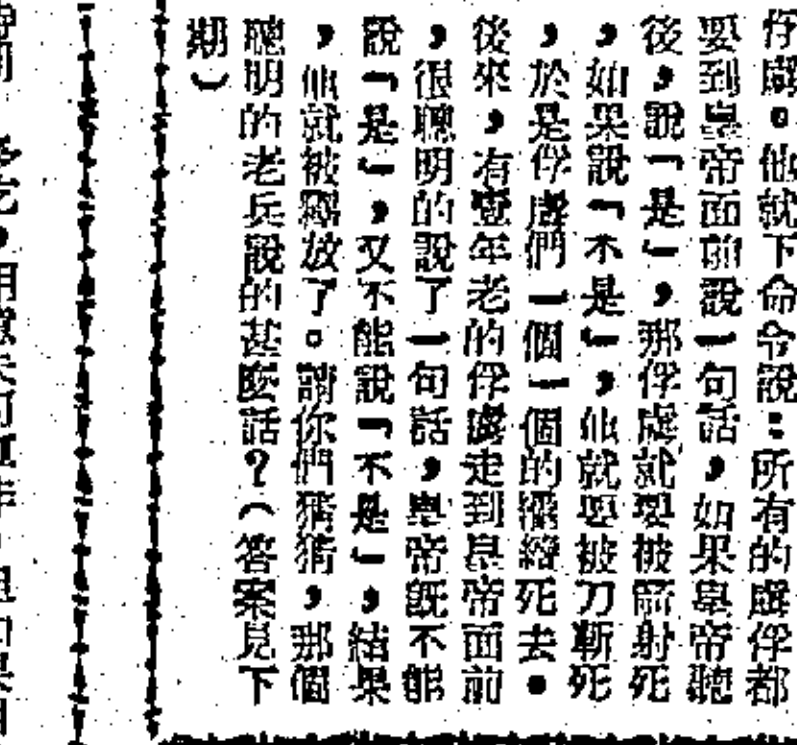 俘虜。他就下命令說：所有的虜俘都
要到皇帝面前說一句話，如果皇帝聽
後，說「是」，那俘虜就要被箭射死
，如果說「不是」，他就要被刀斬死
，於是俘虜們一個一個的繼續死去。
後來，有壹年老的俘虜走到皇帝面前
，很聰明的說了一句話，皇帝既不能
說「是」，又不能說「不是」，結果
，他就被釋放了。請你們猜猜，那個
聰明的老兵說的甚麼話？（答案見下
期）